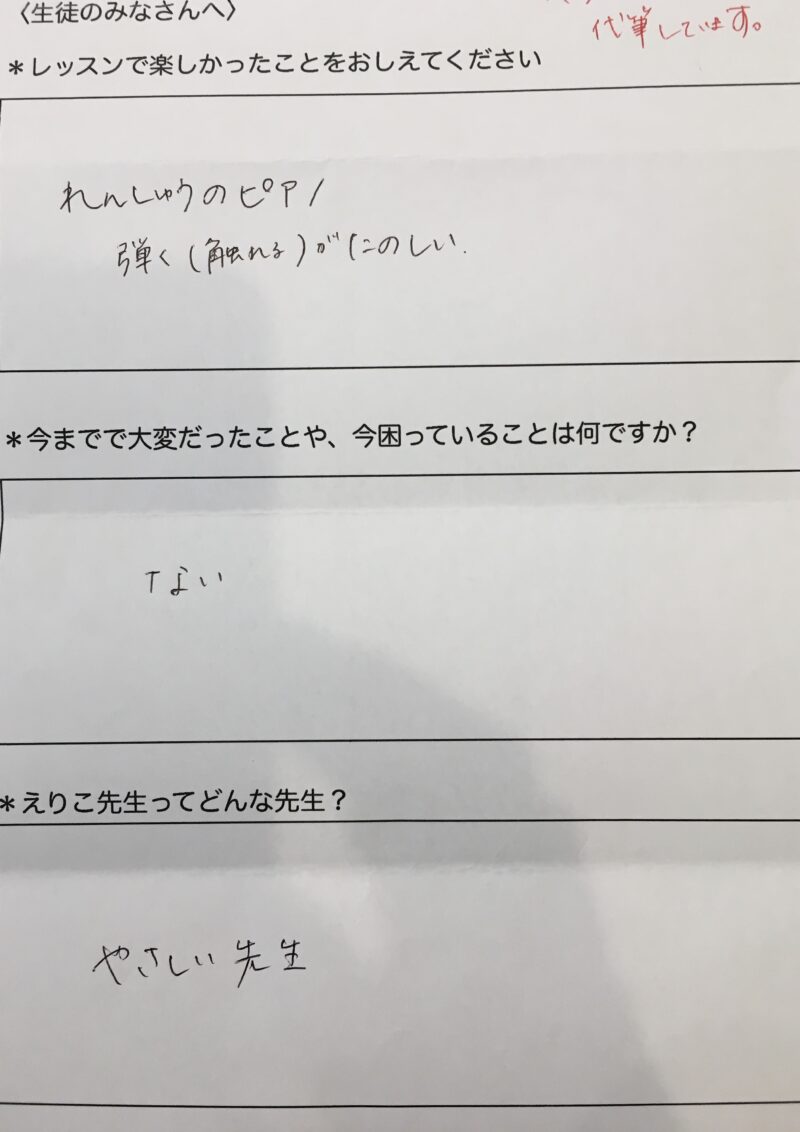 〈生徒のみなさんへ〉
代筆しています。
＊レッスンで楽しかったことをおしえてください
れんしゅうのピアノ
弾く(触れる)がたのしい.
＊今までで大変だったことや、今困っていることは何ですか？
ない
＊えりこ先生ってどんな先生？
やさしい先生